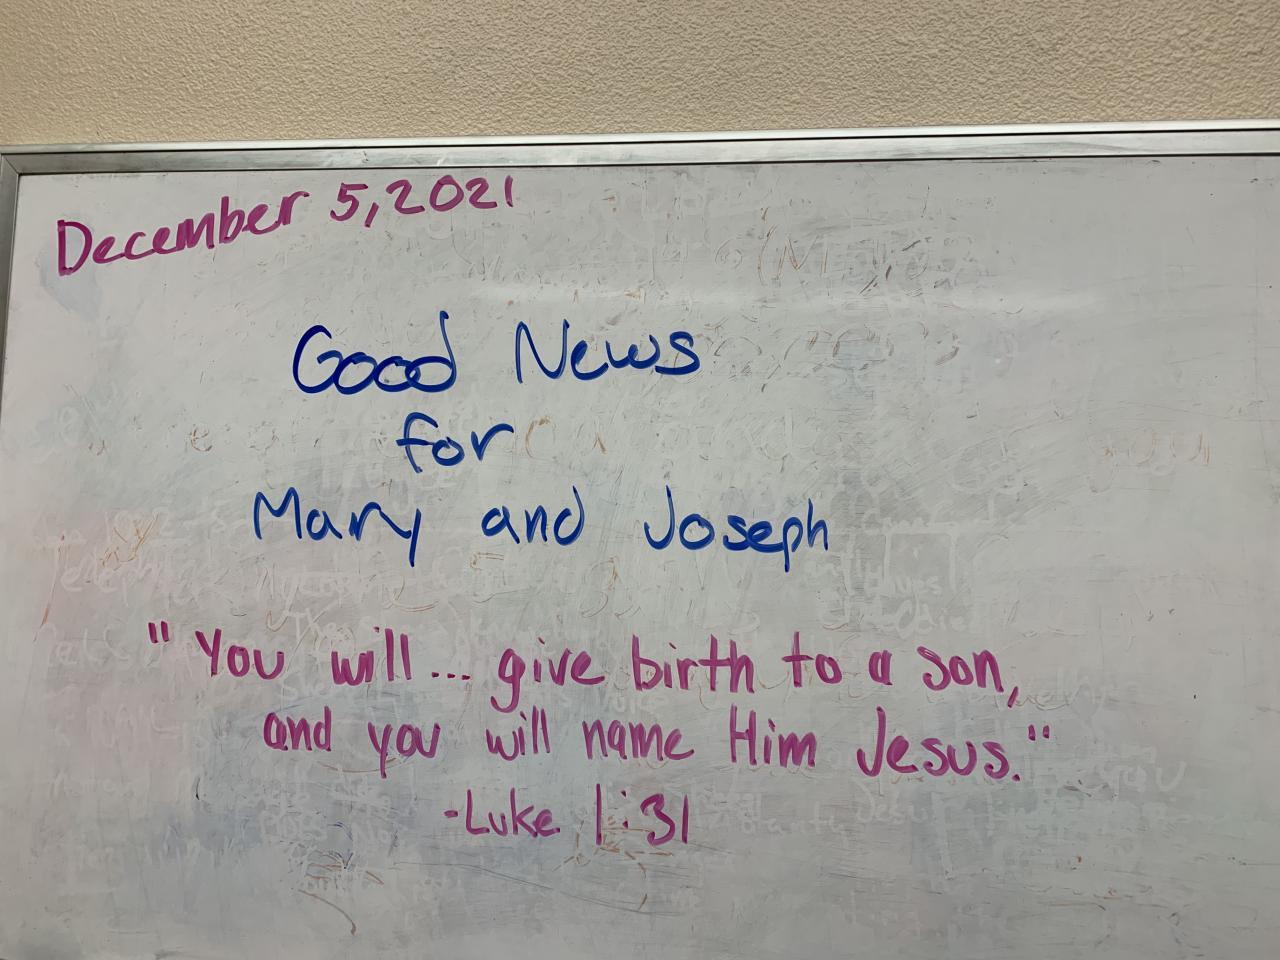 December 5, 2021
Good News
for
Mary and Joseph
"You will... give birth to a son,
and you will name Him Jesus."
-Luke 1:31